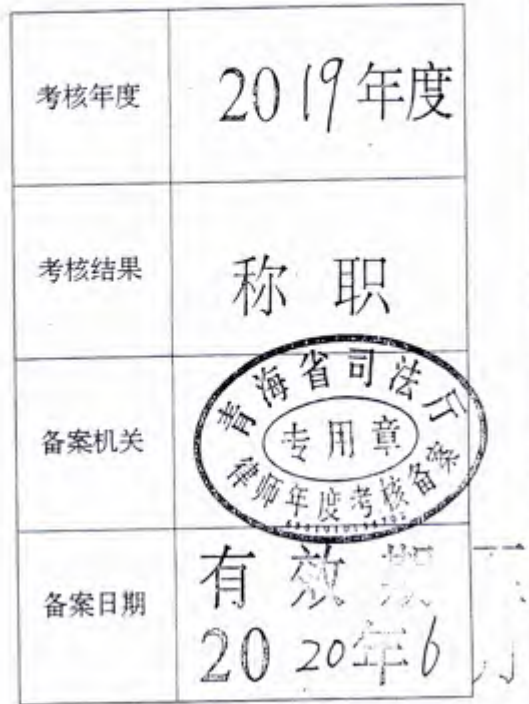 考核年度
2019年度
考核结果
称职
备案机关
青海省司法厅
专用章
律师年度考核备案
备案日期
有效期至
2020年6月